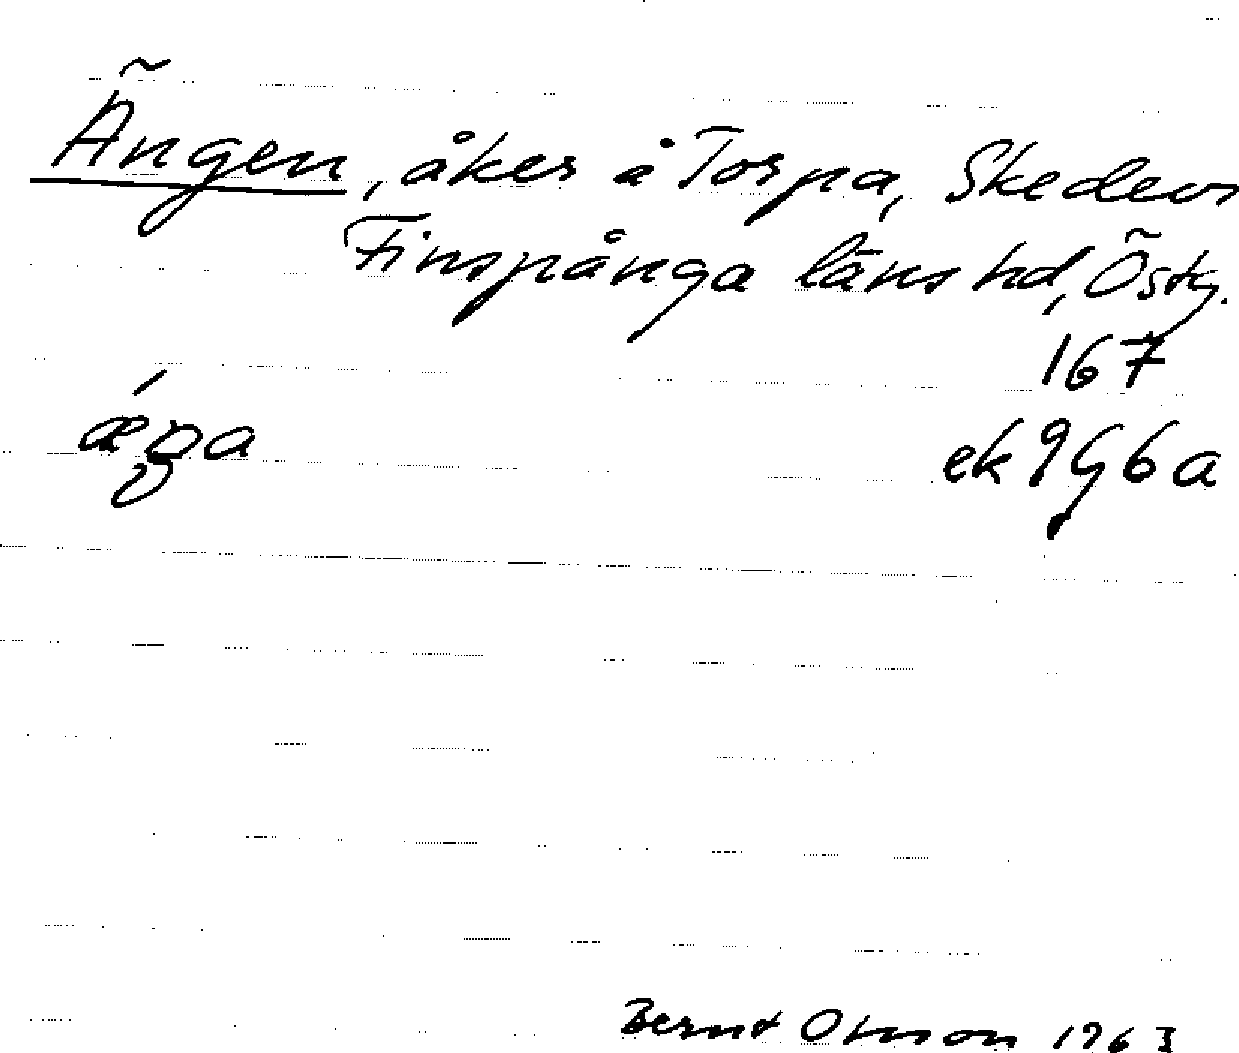 Ängen, åker å Torpa, Skedevi
Finspånga läns hd, Östg.
167
ek 9G6a
Bernt Olsson 1963